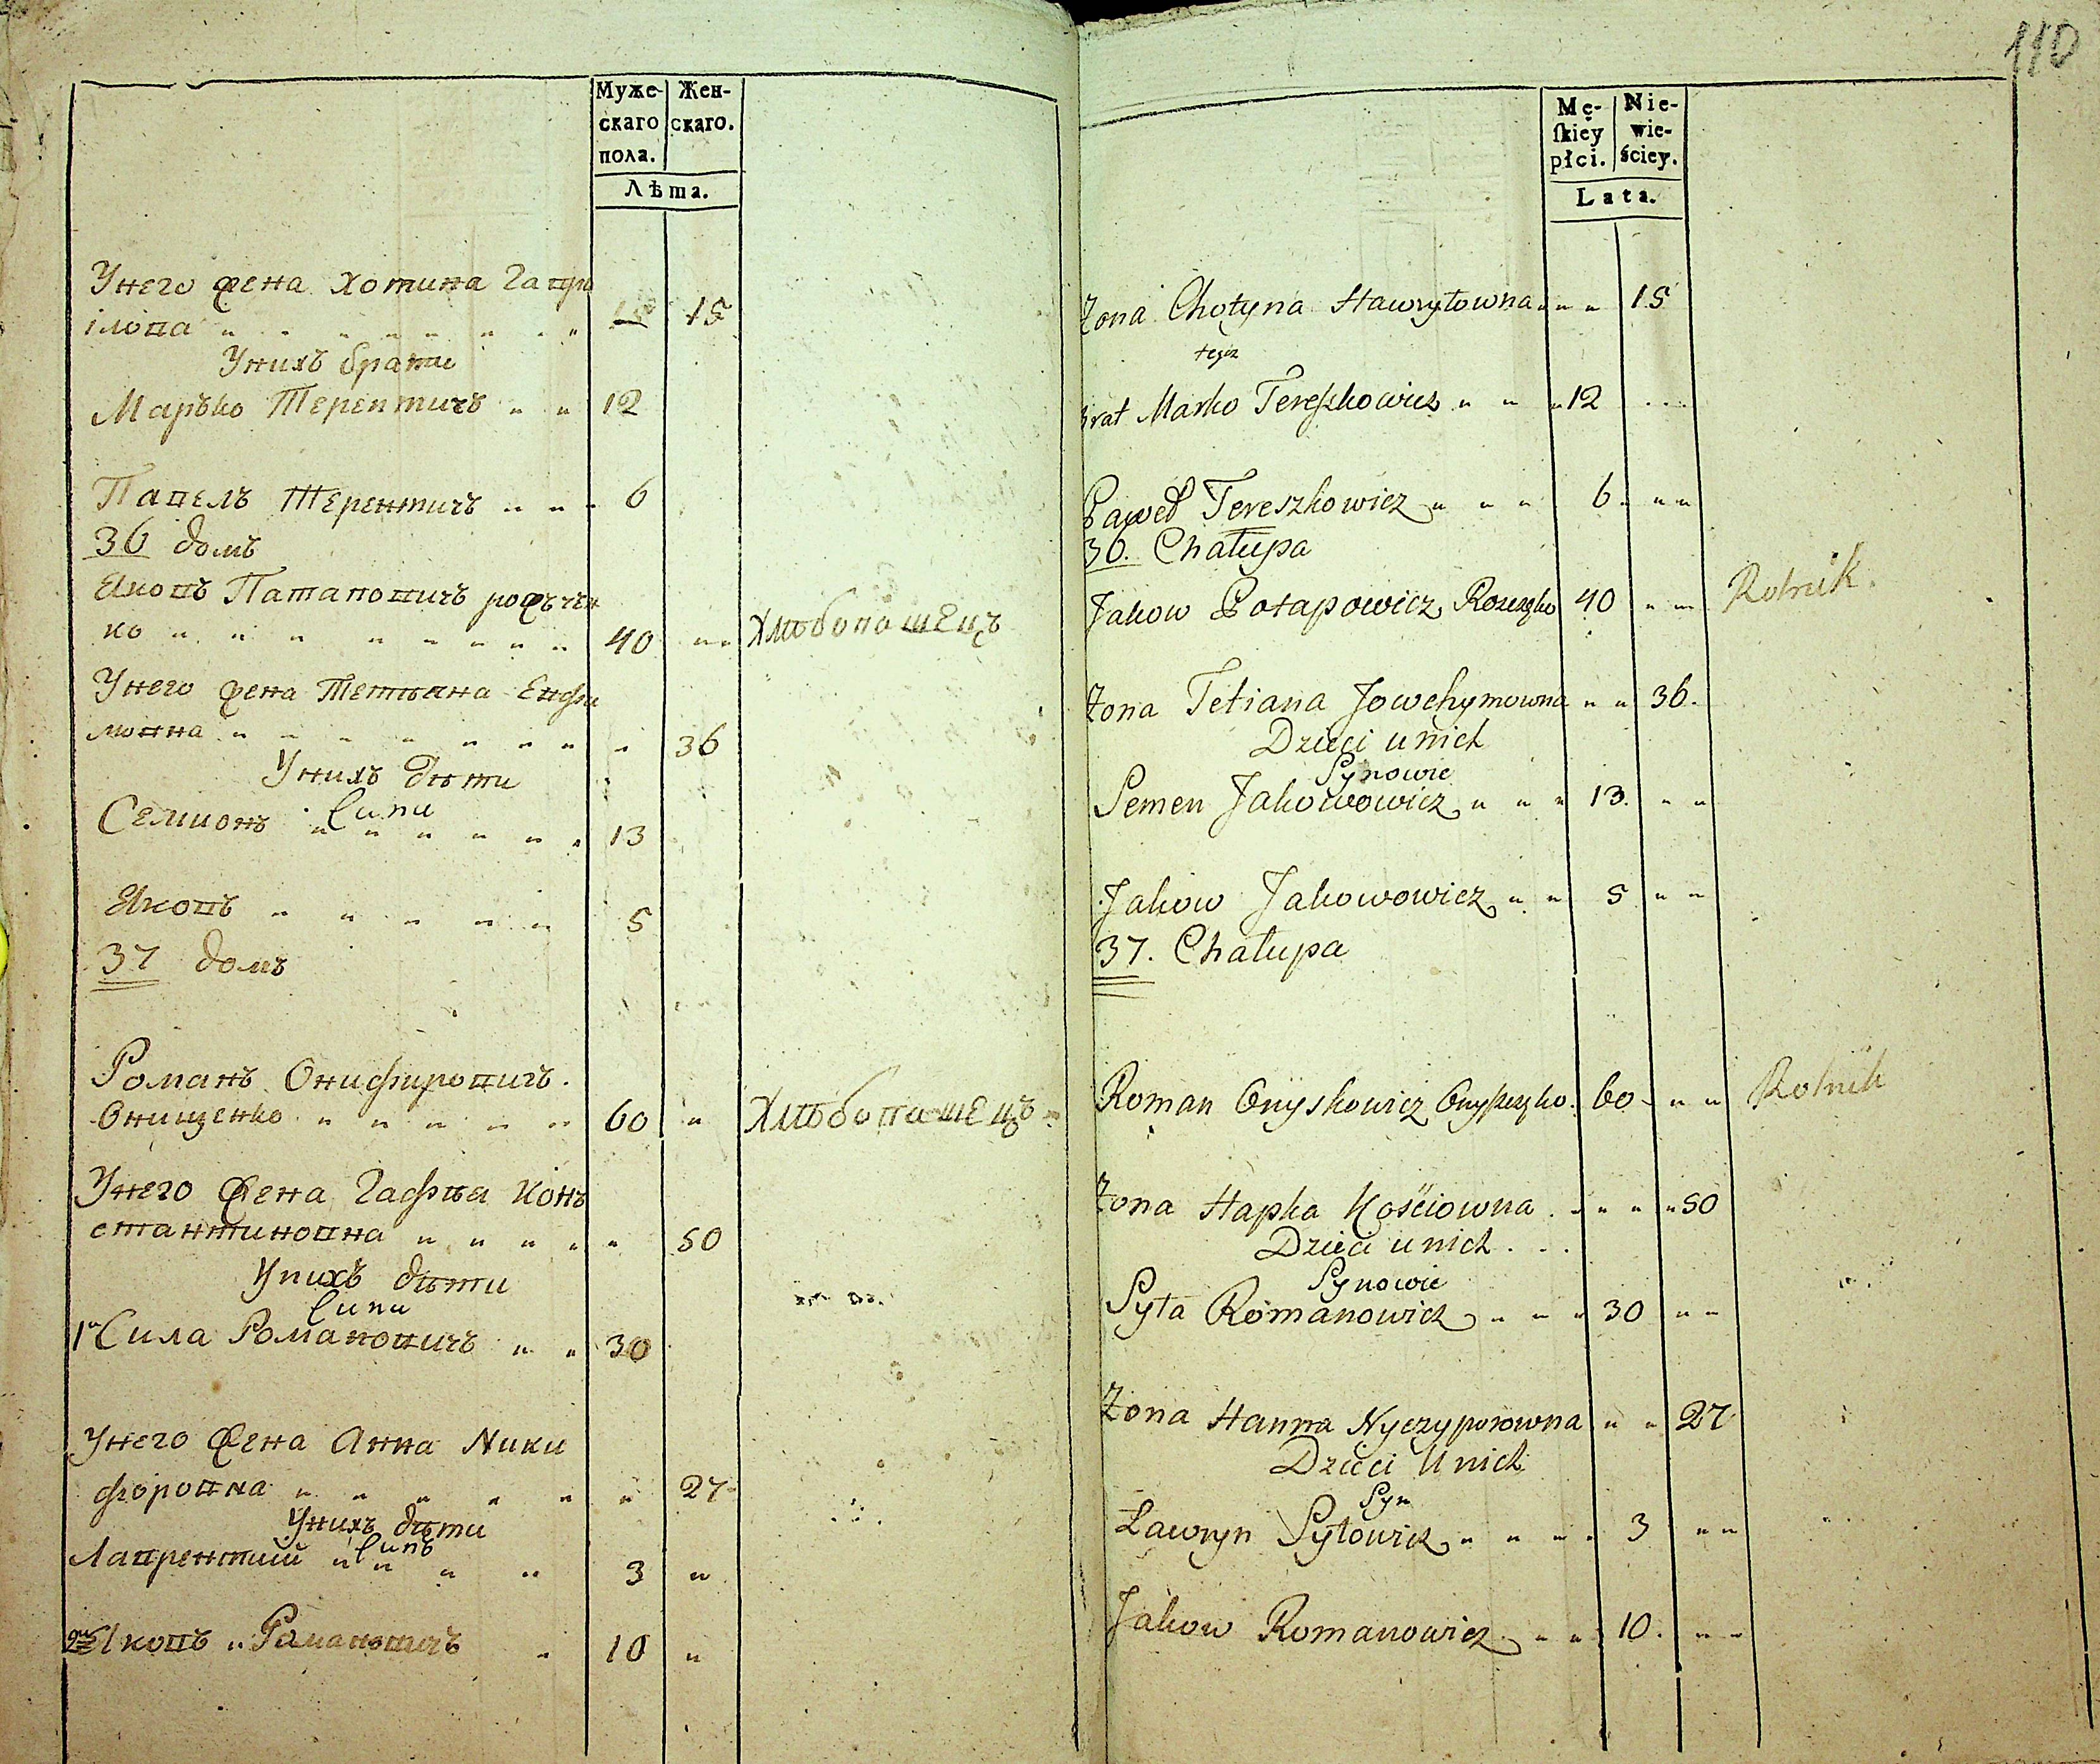 110
Муже-
скаго
пола.
Жен-
скаго.
Лѣта.
Унего жена Хотина Гаври
ілова " " " " " " " 15
Унихъ брати
Маръко Терентичъ " " 12
Павелъ Терентичъ " " " 6
36 домъ
Яковъ Патаповичъ рожъчен
ко " " " " " " " " 40 " " Хлѣбопашецъ
Унего жена Тетѣяна Ефи
мовна " " " " " " " " 36
Унихъ дѣти
Сини
Семионъ " " " " " " 13
Яковъ " " " " " 5
37 домъ
Романъ Онифировичъ.
Онищенко " " " " " 60 " Хлѣбопашецъ
Унего жена Гафѣя Конъ
стантиновна " " " " " 50
Унихъ дѣти
Сини
1" Сила Романовичъ " " 30
Унего жена Анна Ники
форовна " " " " " " 27
Унихъ дѣти
Синъ
Лаврентий " " " " 3 "
Яковъ " Романовичъ " 10 "
Mę-
ſkiey
płci.
Nie-
wie-
ściey.
Lata.
Żona Chotyna Hawryłowna " " " 15
tegoż
Brat Marko Tereszkowicz " " " 12 " "
Paweł Tereszkowicz " " " 6. " "
36. Chałupa
Jakow Potapowicz Rożeczko 40 " " Rolnik.
Żona Tetiana Jowchymowna " " 36.
Dzieci u nich
Synowie
Semen Jakowowicz " " " 13. " "
Jakow Jakowowicz " " 5 " "
37. Chałupa
Roman Onyskowicz Onyszczko. 60 " " Rolnik
Żona Hapka Kościowna " " " " 50
Dzieci u nich . . .
Synowie
Syła Romanowicz " " " 30 " "
Żona Hanna Nyczyporowna " " 27
Dzieci U nich
Syn
Ławryn Syłowicz " " " " 3 " "
Jakow Romanowicz " " 10. " "